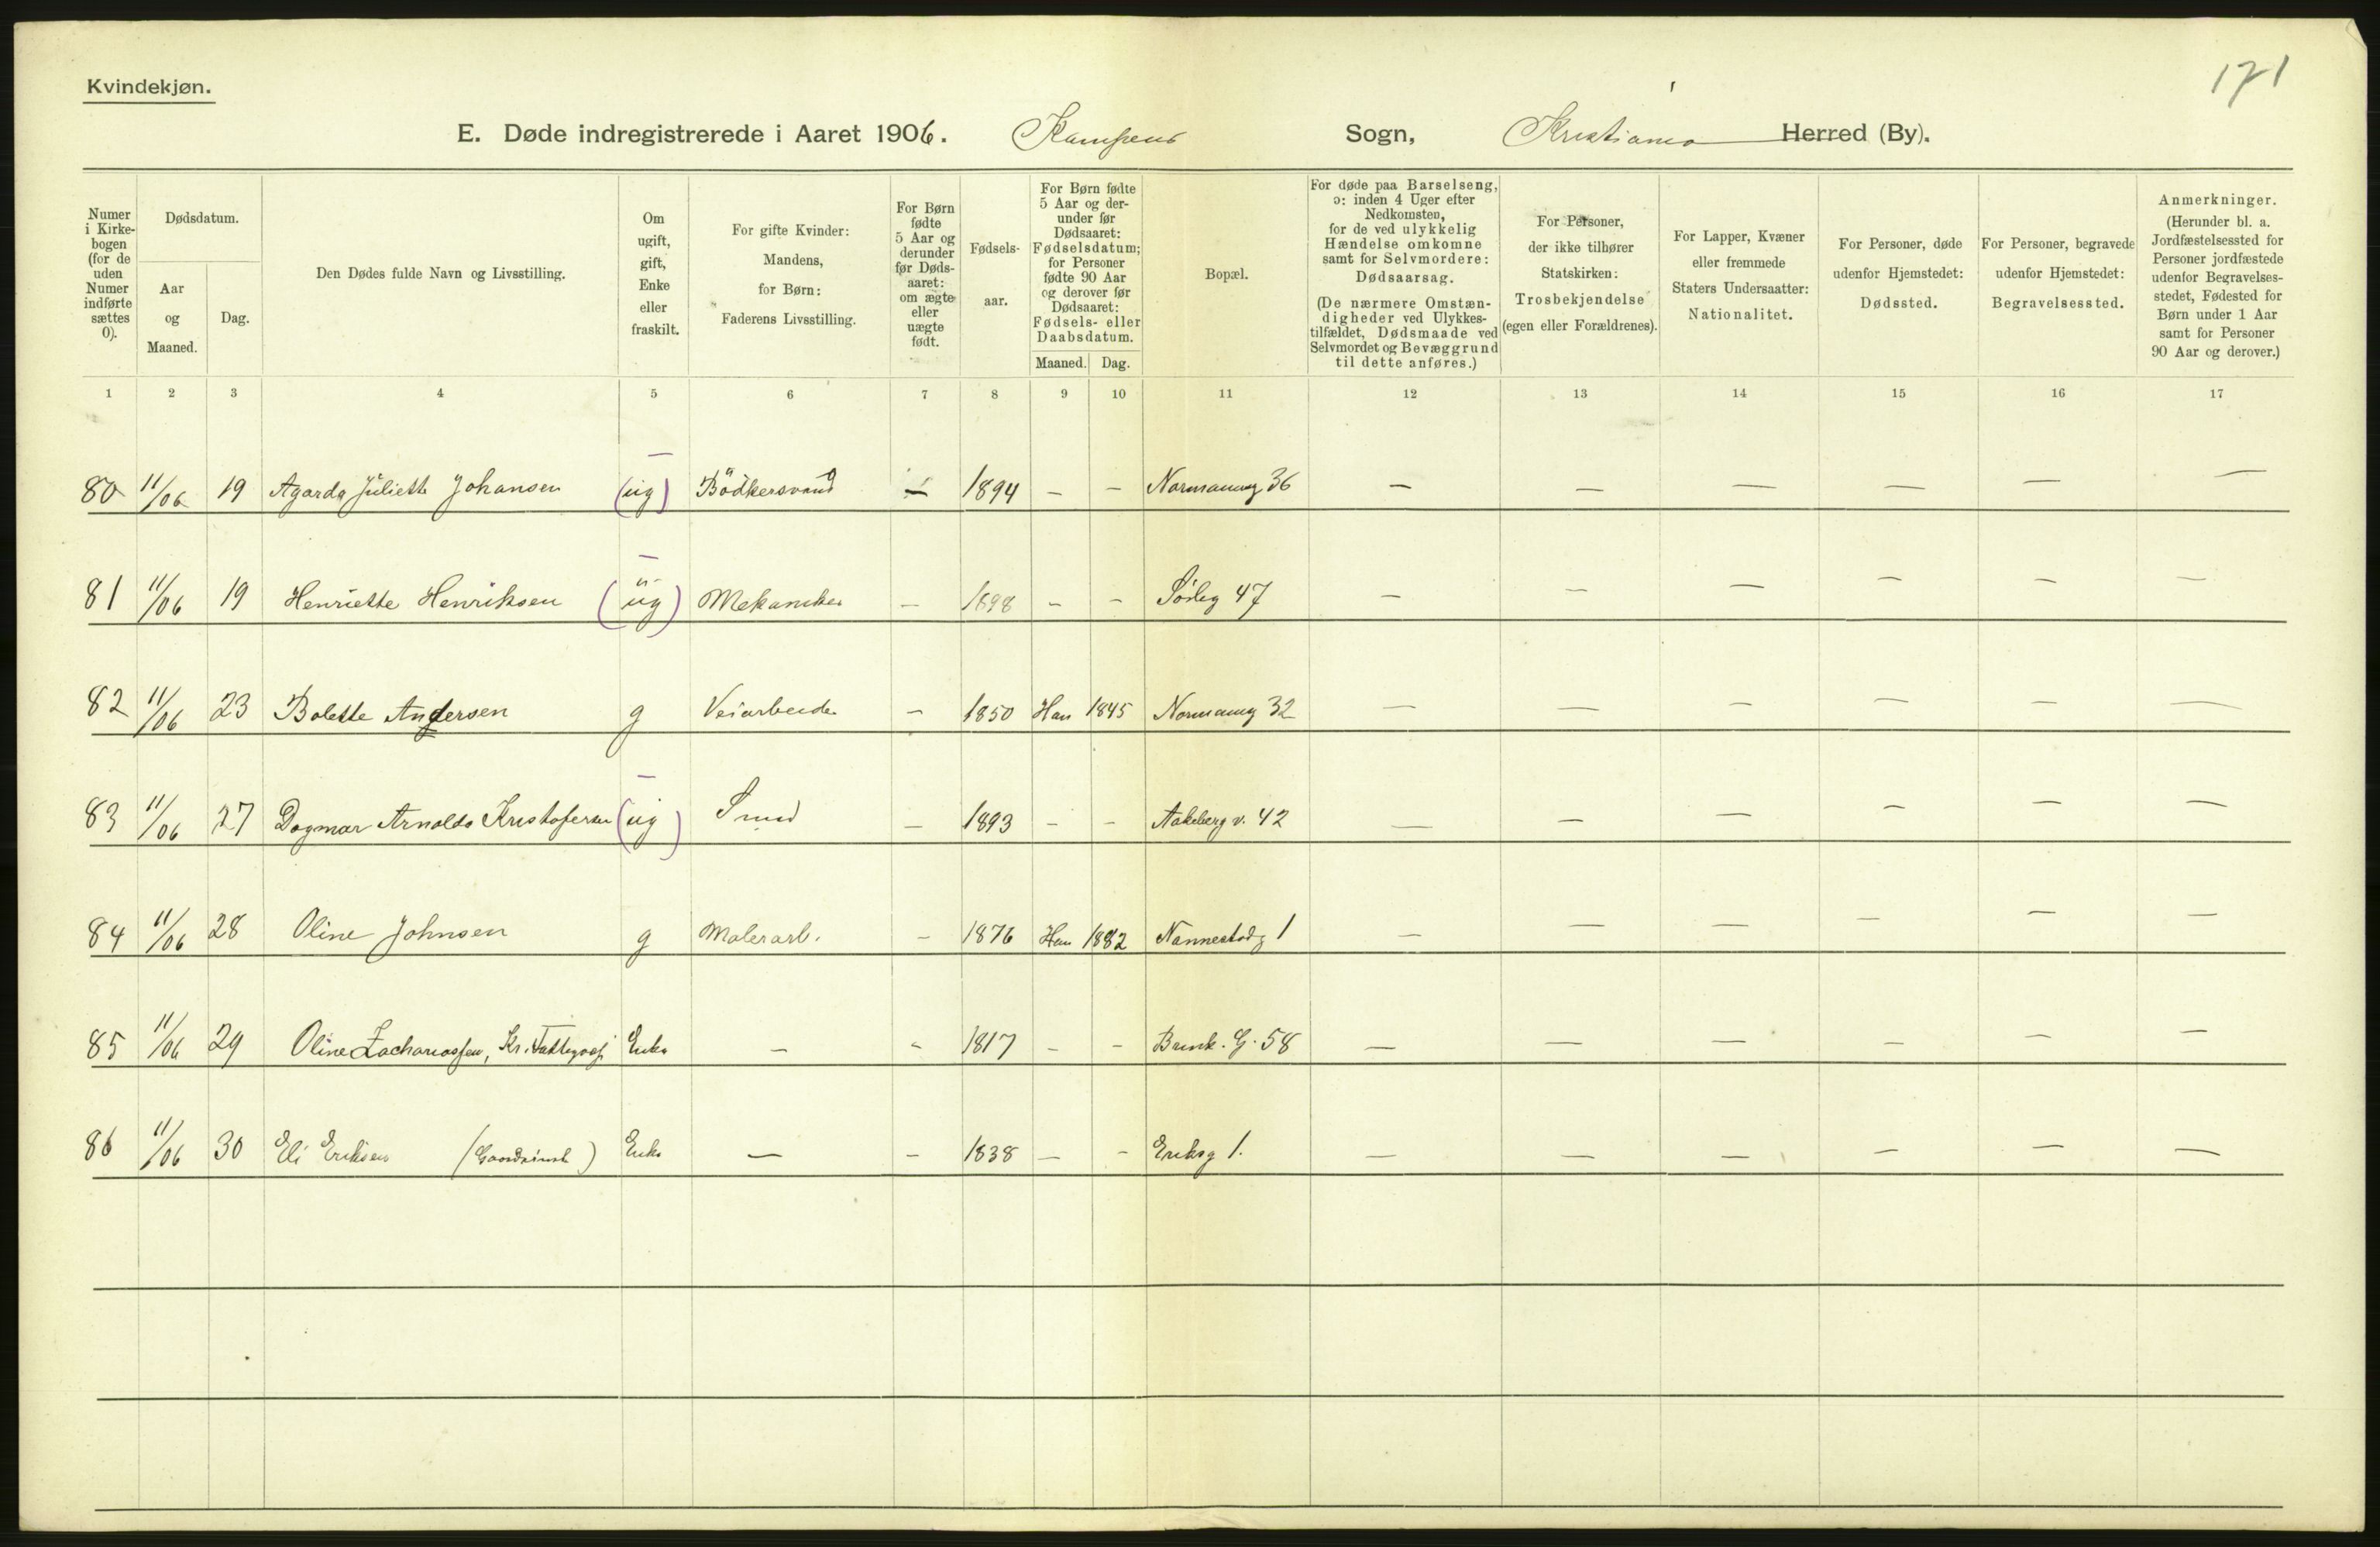 171
Kvindekjøn.
E. Døde indregistrerede i Aaret 1906. Kampens Sogn, Kristiania Herred (By).
Numer i Kirkebogen (for de uden Numer indførte sættes 0).
Dødsdatum.
Aar og Maaned.
Dag.
Den Dødes fulde Navn og Livsstilling.
Om ugift, gift, Enke eller fraskilt.
For gifte Kvinder: Mandens, for Børn: Faderens Livsstilling.
For Børn fødte 5 Aar og derunder før Dødsaaret: om ægte eller uægte født.
Fødselsaar.
For Børn fødte 5 Aar og derunder før Dødsaaret: Fødselsdatum; for Personer fødte 90 Aar og derover før Dødsaaret: Fødsels- eller Daabsdatum.
Maaned. Dag.
Bopæl.
For døde paa Barselseng, ɔ: inden 4 Uger efter Nedkomsten, for de ved ulykkelig Hændelse omkomne samt for Selvmordere: Dødsaarsag. (De nærmere Omstændigheder ved Ulykkestilfældet, Dødsmaade ved Selvmordet og Bevæggrund til dette anføres.)
For Personer, der ikke tilhører Statskirken: Trosbekjendelse (egen eller Forældrenes).
For Lapper, Kvæner eller fremmede Staters Undersaatter: Nationalitet.
For Personer, døde udenfor Hjemstedet: Dødssted.
For Personer, begravede udenfor Hjemstedet: Begravelsessted.
Anmerkninger. (Herunder bl. a. Jordfæstelsessted for Personer jordfæstede udenfor Begravelsesstedet, Fødested for Børn under 1 Aar samt for Personer 90 Aar og derover.)
1 2 3 4 5 6 7 8 9 10 11 12 13 14 15 16 17
80 11/06 19 Agarda Juliette Johansen (ug) Bødkersvend — 1894 — — Normanng 36 — — — — — —
81 11/06 19 Henriette Henriksen (ug) Mekaniker — 1898 — — Sørleg 47 — — — — — —
82 11/06 23 Bolette Andersen g Veiarbeider — 1850 Han 1845 Normanng 32 — — — — — —
83 11/06 27 Dagmar Arnolda Kristofersen (ug) Smed — 1893 — — Aakeberg v. 42 — — — — — —
84 11/06 28 Oline Johnsen g Malerarb. — 1876 Han 1882 Nannestadg 1 — — — — — —
85 11/06 29 Oline Zachariassen, Kr. Fattigvæs Enke — — 1817 — — Brink. G. 58 — — — — — —
86 11/06 30 Eli Eriksen Enke — — 1838 — — Eriksg 1. — — — — — —